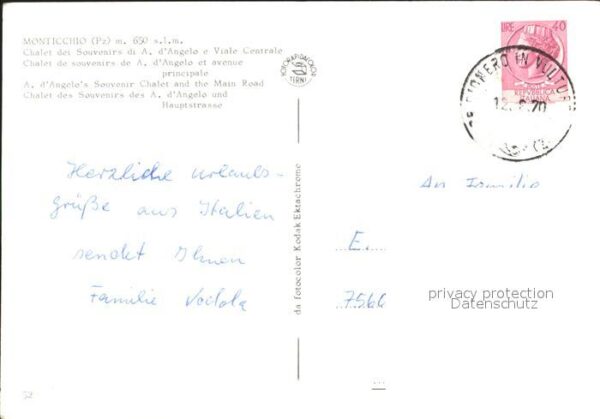 MONTICCHIO (Pz) m. 650 s.l.m.
Chalet dei Souvenirs di A. d'Angelo e Viale Centrale
Chalet de souvenirs de A. d'Angelo et avenue
principale
A. d'Angelo's Souvenir Chalet and the Main Road
Chalet des Souvenirs des A. d'Angelo und
Hauptstrasse
FOTORAPIDACOLOR
TERNI
LIRE 40
REPVBBLICA
ITALIANA
RIONERO IN VULTURE
70
Herzliche Urlaubs-
grüße aus Italien
sendet Ihnen
Familie
da fotocolor Kodak Ektachrome
An Familie
E.
7566
privacy protection
Datenschutz
...
52